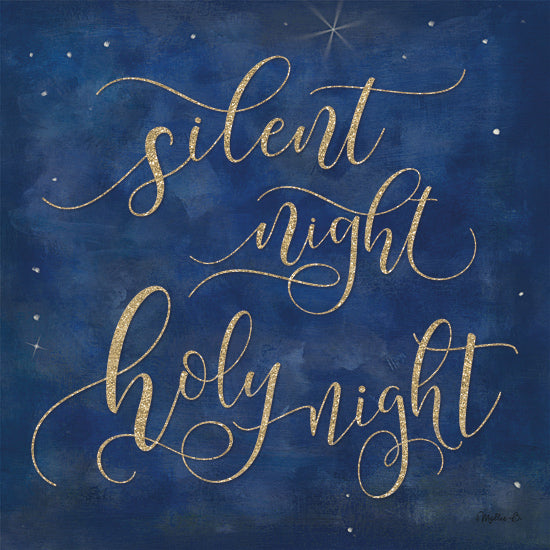 silent
night
holy night